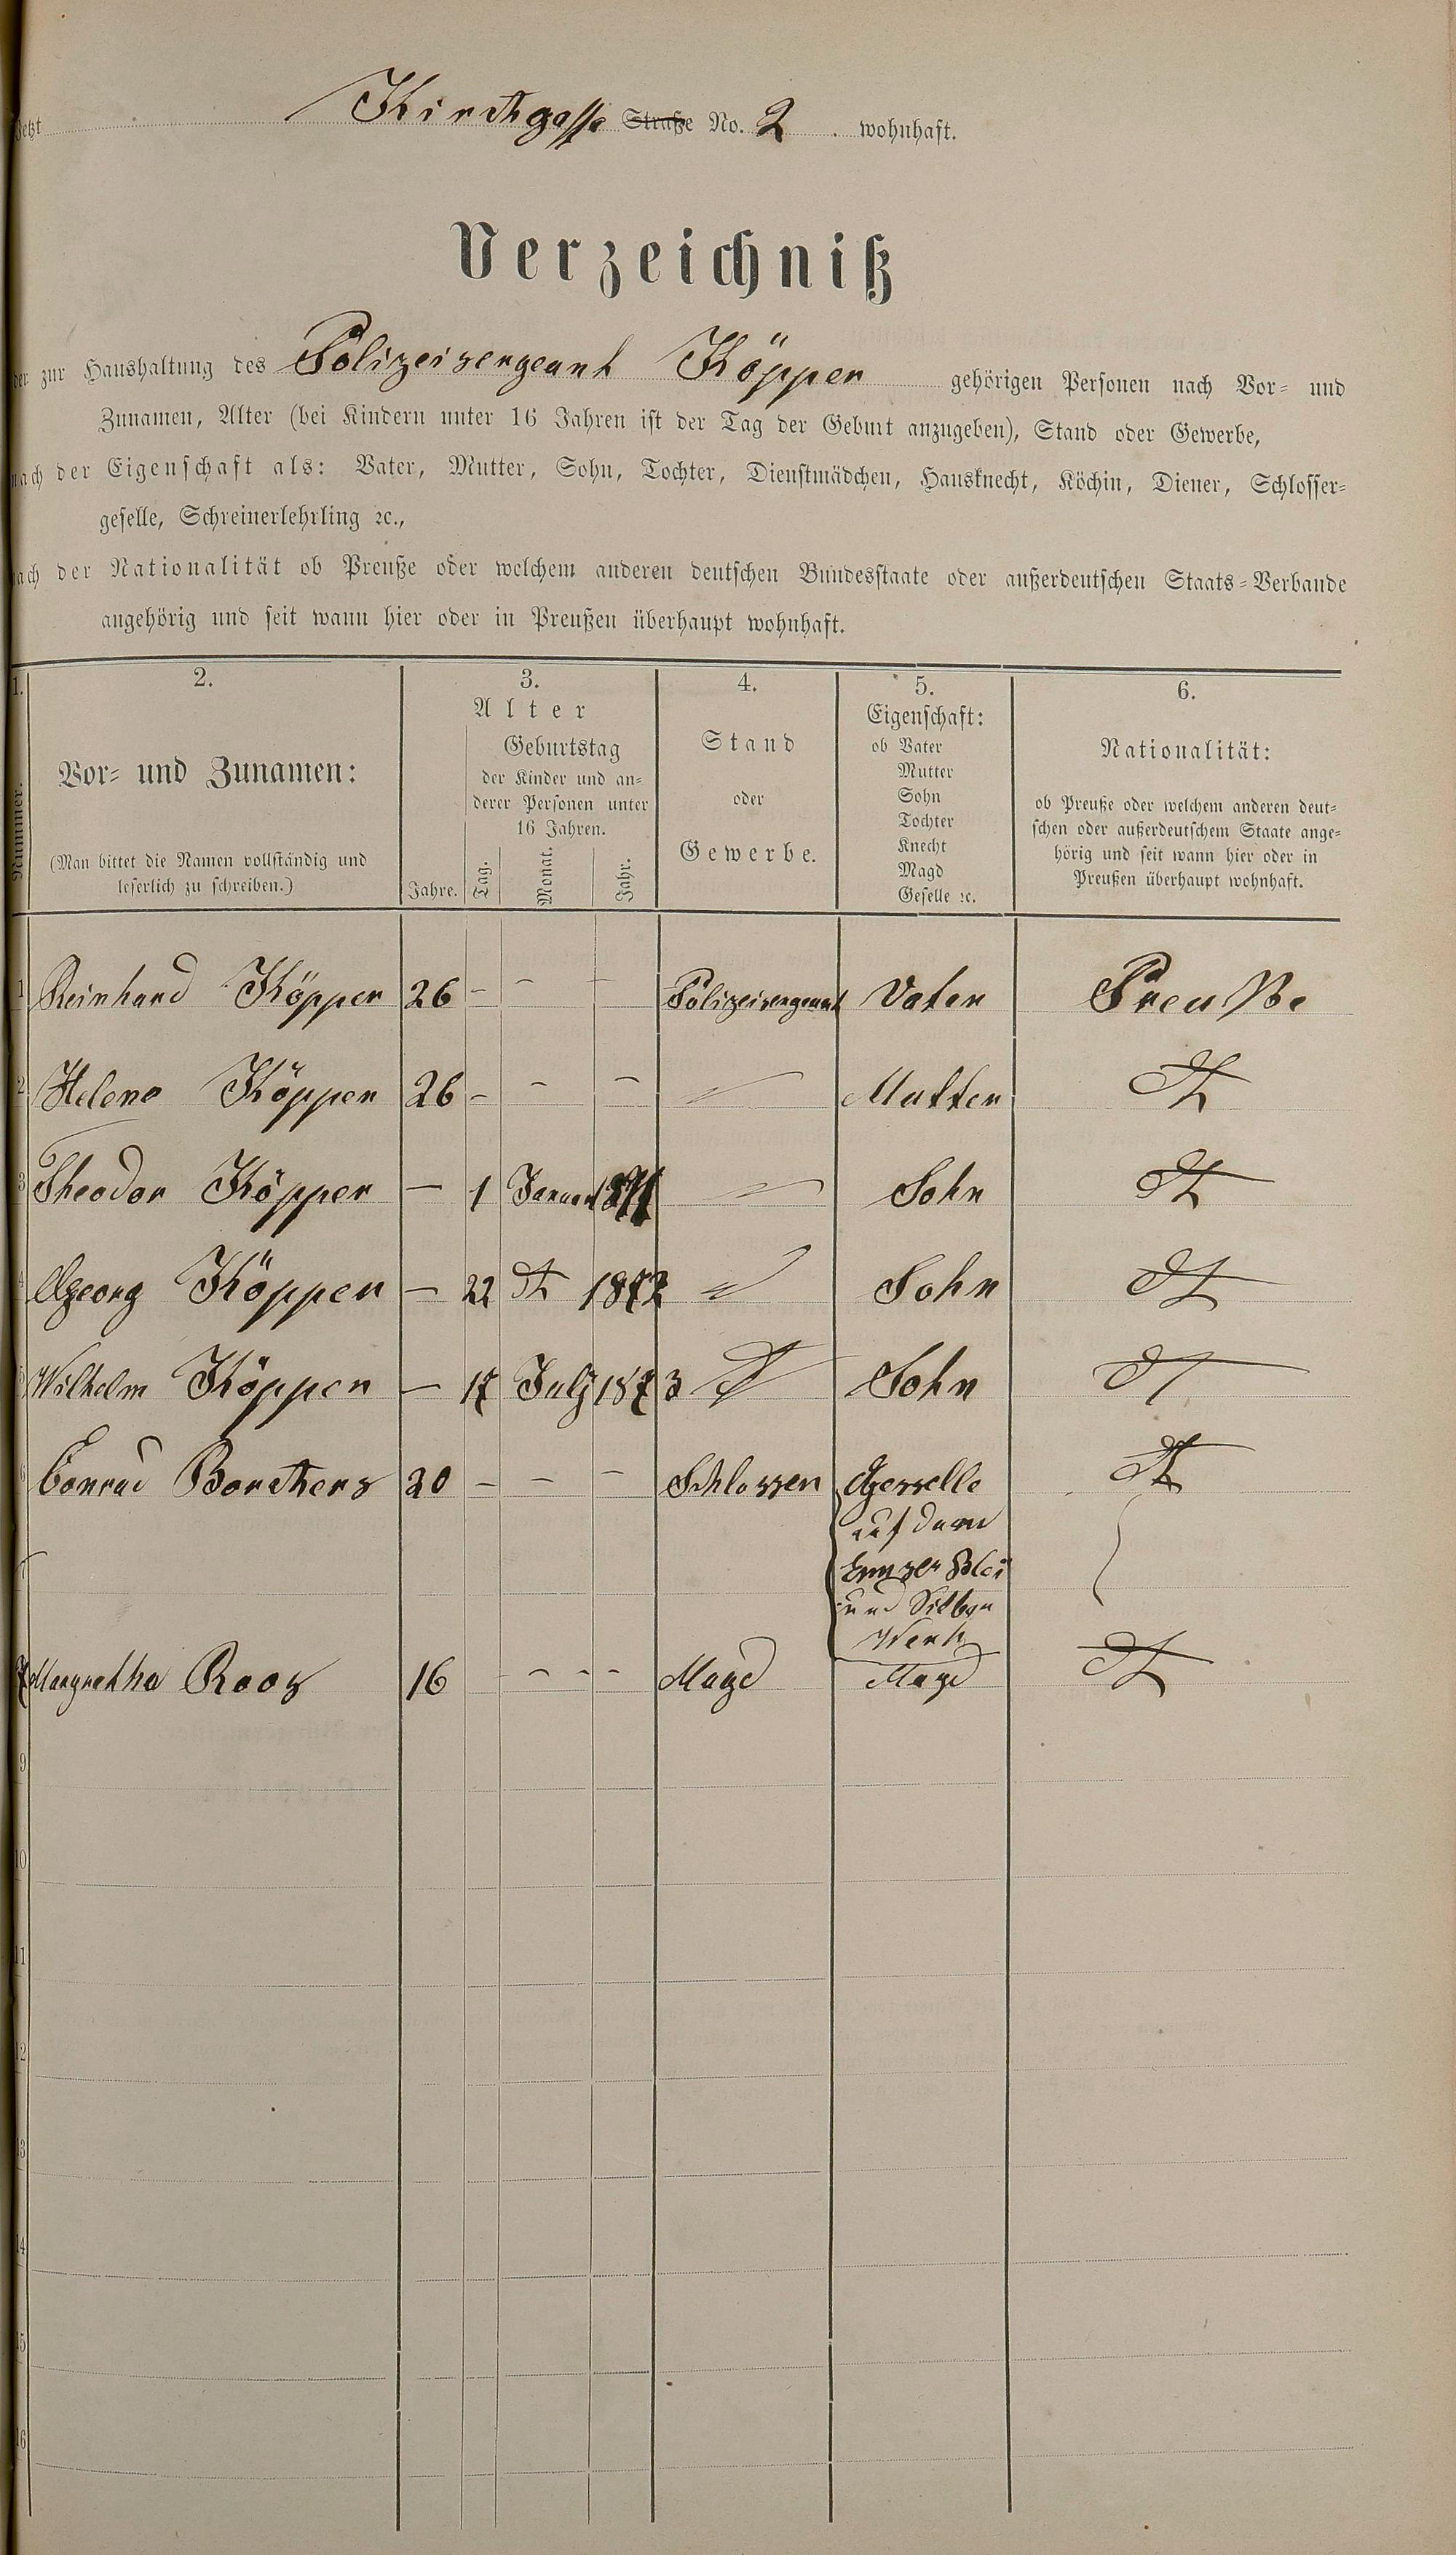 Jetzt Kirchgasse Straße No. 2. wohnhaft.
Verzeichniß
der zur Haushaltung des Polizeisergeant Köpper gehörigen Personen nach Vor- und
Zunamen, Alter (bei Kindern unter 16 Jahren ist der Tag der Geburt anzugeben), Stand oder Gewerbe,
nach der Eigenschaft als: Vater, Mutter, Sohn, Tochter, Dienstmädchen, Hausknecht, Köchin, Diener, Schlosser-
geselle, Schreinerlehrling ꝛc.,
nach der Nationalität ob Preuße oder welchem anderen deutschen Bundesstaate oder außerdeutschen Staats-Verbande
angehörig und seit wann hier oder in Preußen überhaupt wohnhaft.
1.
Nummer.
2.
Vor- und Zunamen:
(Man bittet die Namen vollständig und
leserlich zu schreiben.)
3.
Alter
Jahre.
Geburtstag
der Kinder und an-
derer Personen unter
16 Jahren.
Tag. Monat. Jahr.
4.
Stand
oder
Gewerbe.
5.
Eigenschaft:
ob Vater
Mutter
Sohn
Tochter
Knecht
Magd
Geselle ꝛc.
6.
Nationalität:
ob Preuße oder welchem anderen deut-
schen oder außerdeutschem Staate ange-
hörig und seit wann hier oder in
Preußen überhaupt wohnhaft.
1 Reinhard Köpper 26 - - - Polizeisergeant Vater Preuße
2 Helene Köpper 26 - - - Mutter dt
3 Theodor Köpper - 1 Januar 1871 Sohn dt
4 Georg Köpper - 22 dt 1872 Sohn dt
5 Wilhelm Köpper - 17 July 1873 Sohn dt
6 Conrad Borchers 20 - - - Schlosser Gesselle dt
auf dem
Emser Blei
und Silber
Werk
7 Margretha Roos 16 - - - Magd Magd dt
9
10
11
12
13
14
15
16